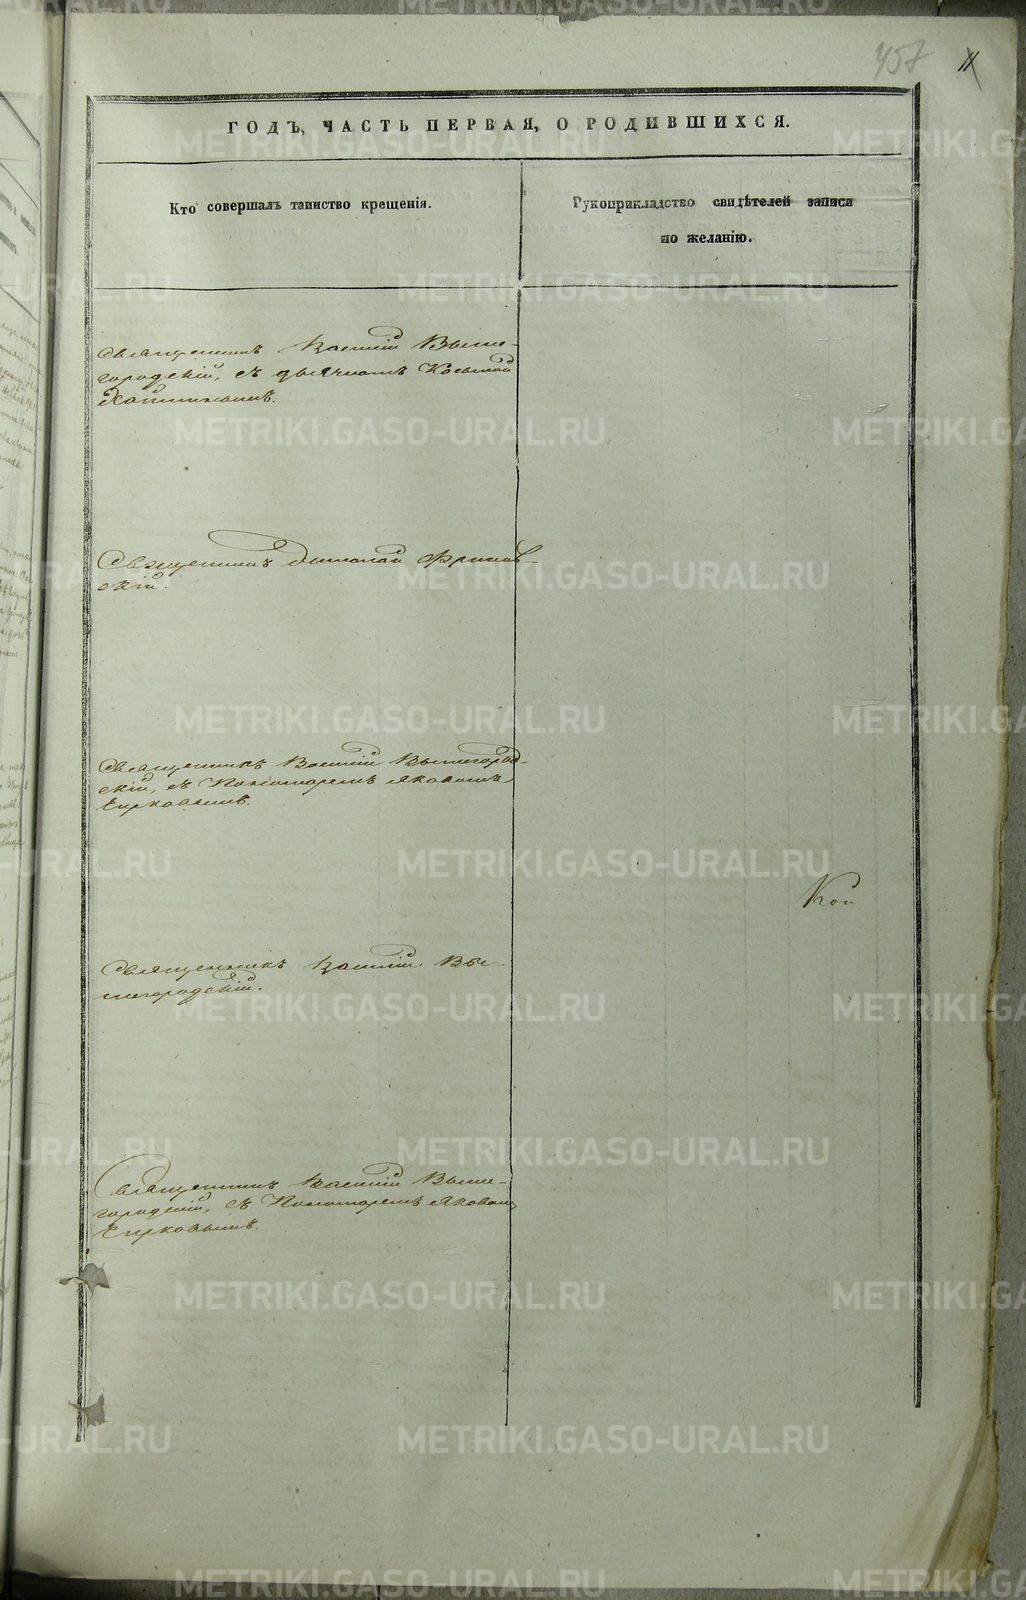 457 11
ГОДЪ, ЧАСТЬ ПЕРВАЯ, О РОДИВШИХСЯ.
Кто совершалъ таинство крещенія.
Рукоприкладство свидѣтелей записи
по желанію.
Священникъ Василій Выше-
городскій, съ дьячкомъ Косьмой
Священникъ Николай
скій.
Священникъ Василій Вышегород-
скій, съ Пономаремъ Яковомъ
Священникъ Василій Вы-
шегородскій.
Священникъ Василій Выше-
городскій, съ Пономаремъ Яковомъ
METRIKI.GASO-URAL.RU